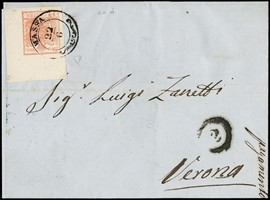 MASSA
22
6
Sig.r Luigi Zanetti
2
Verona